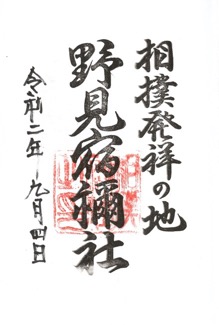 相撲発祥の地
野見宿禰社
令和二年九月四日